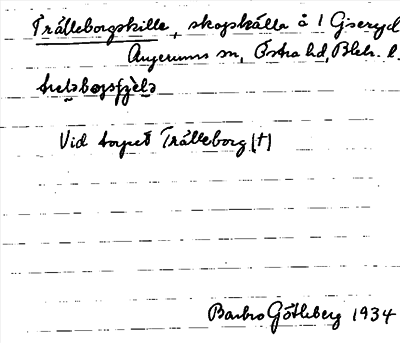 Trälleborgskille, skogskälla å 1 Giseryd
Augerums sn, Östra hd, Blek. l.
Vid torpet Trälleborg [†]
Barbro Götleberg 1934